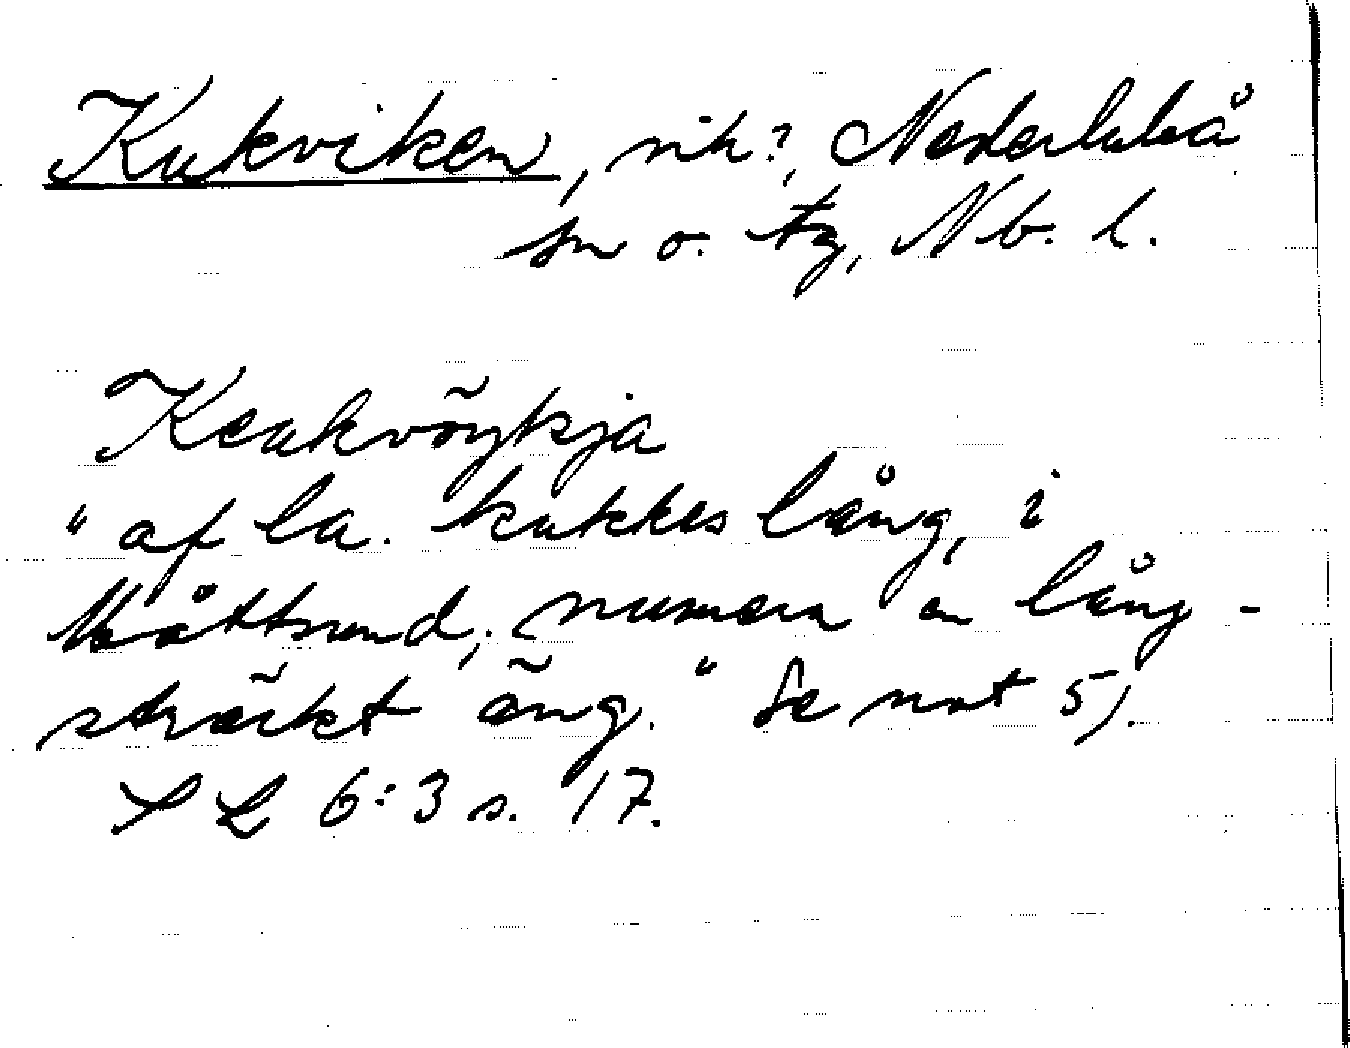 Kukviken, vik?, Nederluleå
sn o. tg, Nb. l.
Keukvöykja
"af la. kukkes lång, i
Måttsund, numera en lång-
sträckt äng." Se not 5).
SL 6:3 s. 17.